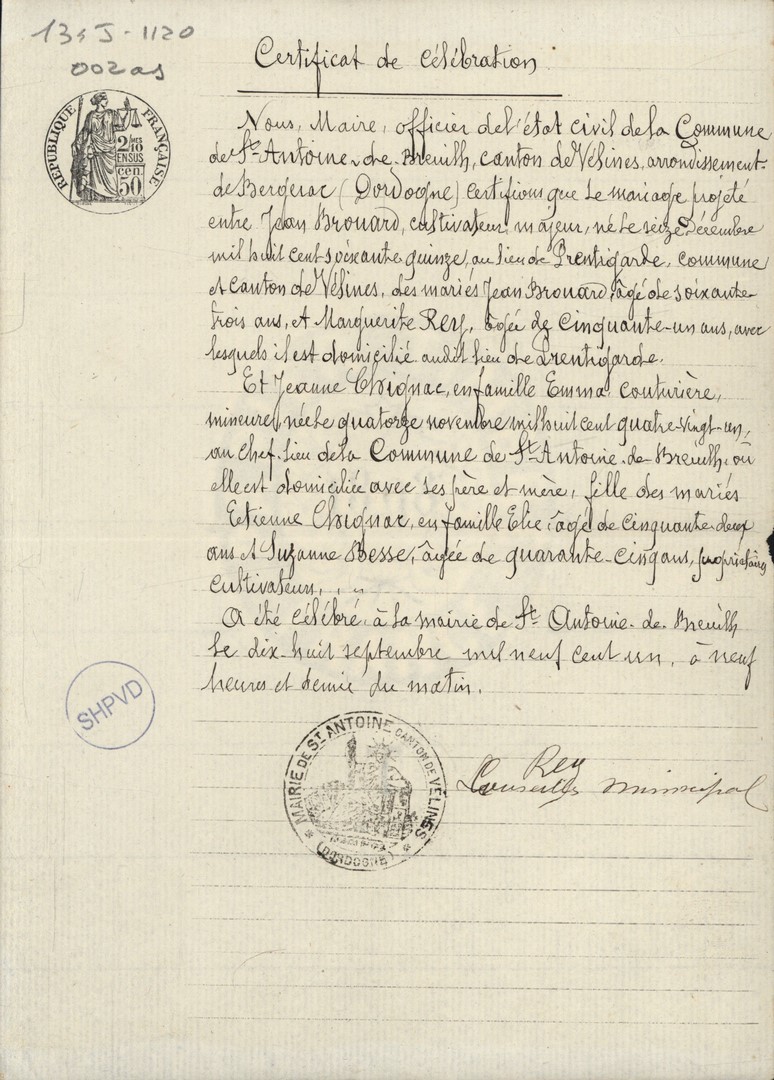 134J-1120
002as
Certificat de célébration
RÉPUBLIQUE FRANÇAISE
2/10
EN SUS
cen.
50
Nous, Maire, officier de l'état civil de la Commune
de St Antoine-de-Breuilh, canton de Vélines, arrondissement
de Bergerac (Dordogne) certifions que le mariage projeté
entre Jean Brouard, cultivateur, majeur, né le seize Décembre
mil huit cent soixante quinze, au lieu de Prentigarde, commune
et canton de Vélines, des mariés Jean Brouard, âgé de soixante-
trois ans, et Marguerite Rey, âgée de cinquante-un ans, avec
lesquels il est domicilié audit lieu de Prentigarde.
Et Jeanne Chignac, en famille Emma, couturière,
mineure, née le quatorze novembre mil huit cent quatre-vingt-un,
au chef-lieu de la Commune de St Antoine-de-Breuilh, où
elle est domiciliée avec ses père et mère, fille des mariés
Etienne Chignac, en famille Elie, âgé de cinquante-deux
ans et Suzanne Besse, âgée de quarante-cinq ans, propriétaires
cultivateurs,
A été célébré, à la mairie de St Antoine-de-Breuilh
le dix-huit septembre mil neuf cent un, à neuf
heures et demie du matin.
SHPVD
MAIRIE DE ST ANTOINE CANTON DE VÉLINES
(DORDOGNE)
Rey
Conseiller municipal